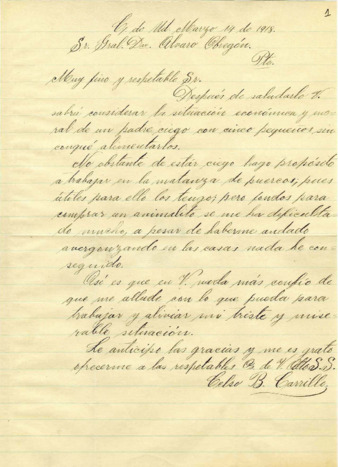 1
C. de Ud. Marzo 14 de 1918.
Sr. Gral. Dn. Alvaro Obregón.
Pte.
Muy fino y respetable Sr.
Después de saludarlo V.
sabrá considerar la situación económica y mo-
ral de un padre ciego con cinco pequeños, sin
conqué alimentarlos.
No obstante de estar ciego hago propósito
a trabajar en la matanza de puercos, pues
útiles para ello los tengo; pero fondos para
comprar un animalito se me ha dificulta
do mucho, a pesar de haberme andado
avergonzando en las casas nada he con-
seguido.
Así es que en V. nada más confío de
que me allude con lo que pueda para
trabajar y aliviar mi triste y mise-
rable situación.
Le anticipo las gracias y me es grato
ofrecerme a las respetables O. de V. S.S.
Celso B. Carrillo